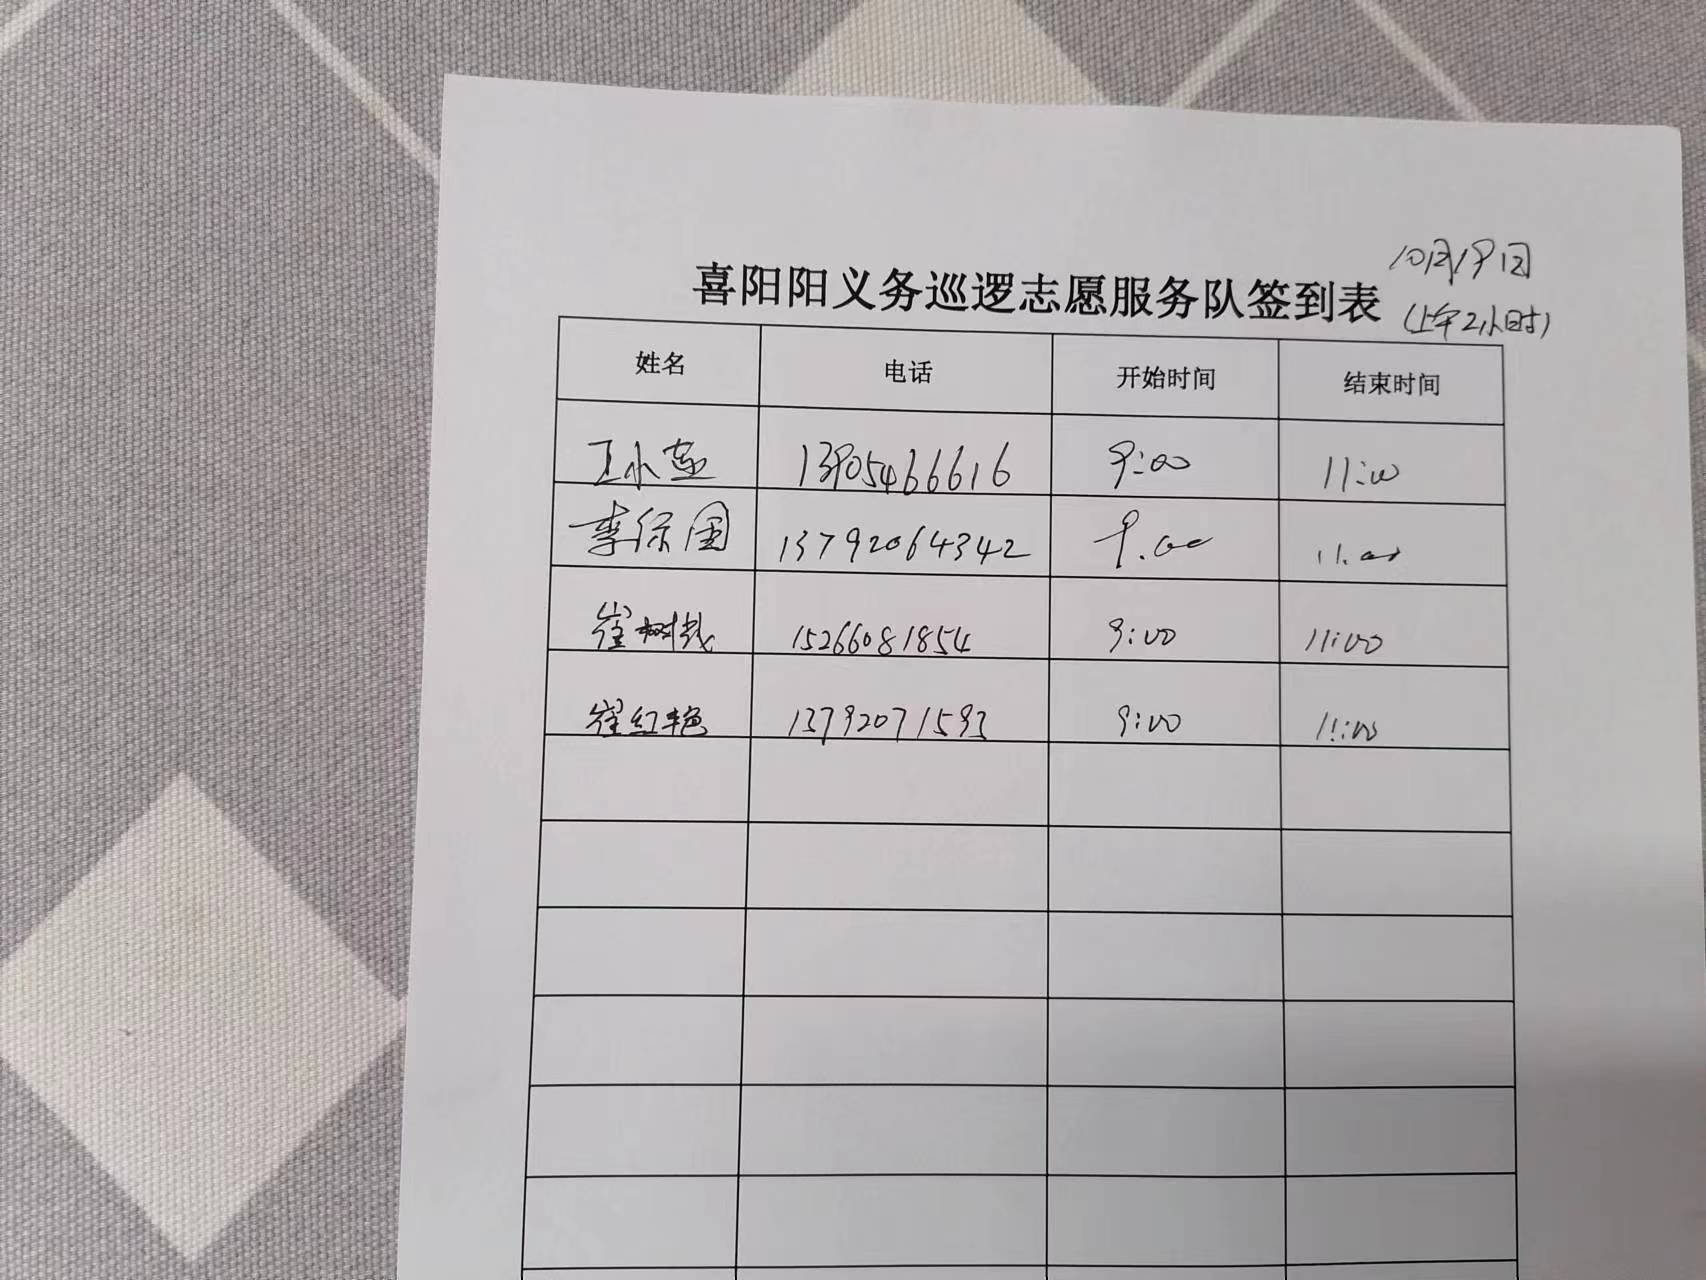 10月19日
喜阳阳义务巡逻志愿服务队签到表
(上午2小时)
姓名 电话 开始时间 结束时间
王小燕 13905466616 9:00 11:00
李保国 13792064342 9.00 11.00
崔树 15266081854 9:00 11:00
崔红艳 13792071593 9:00 11:00